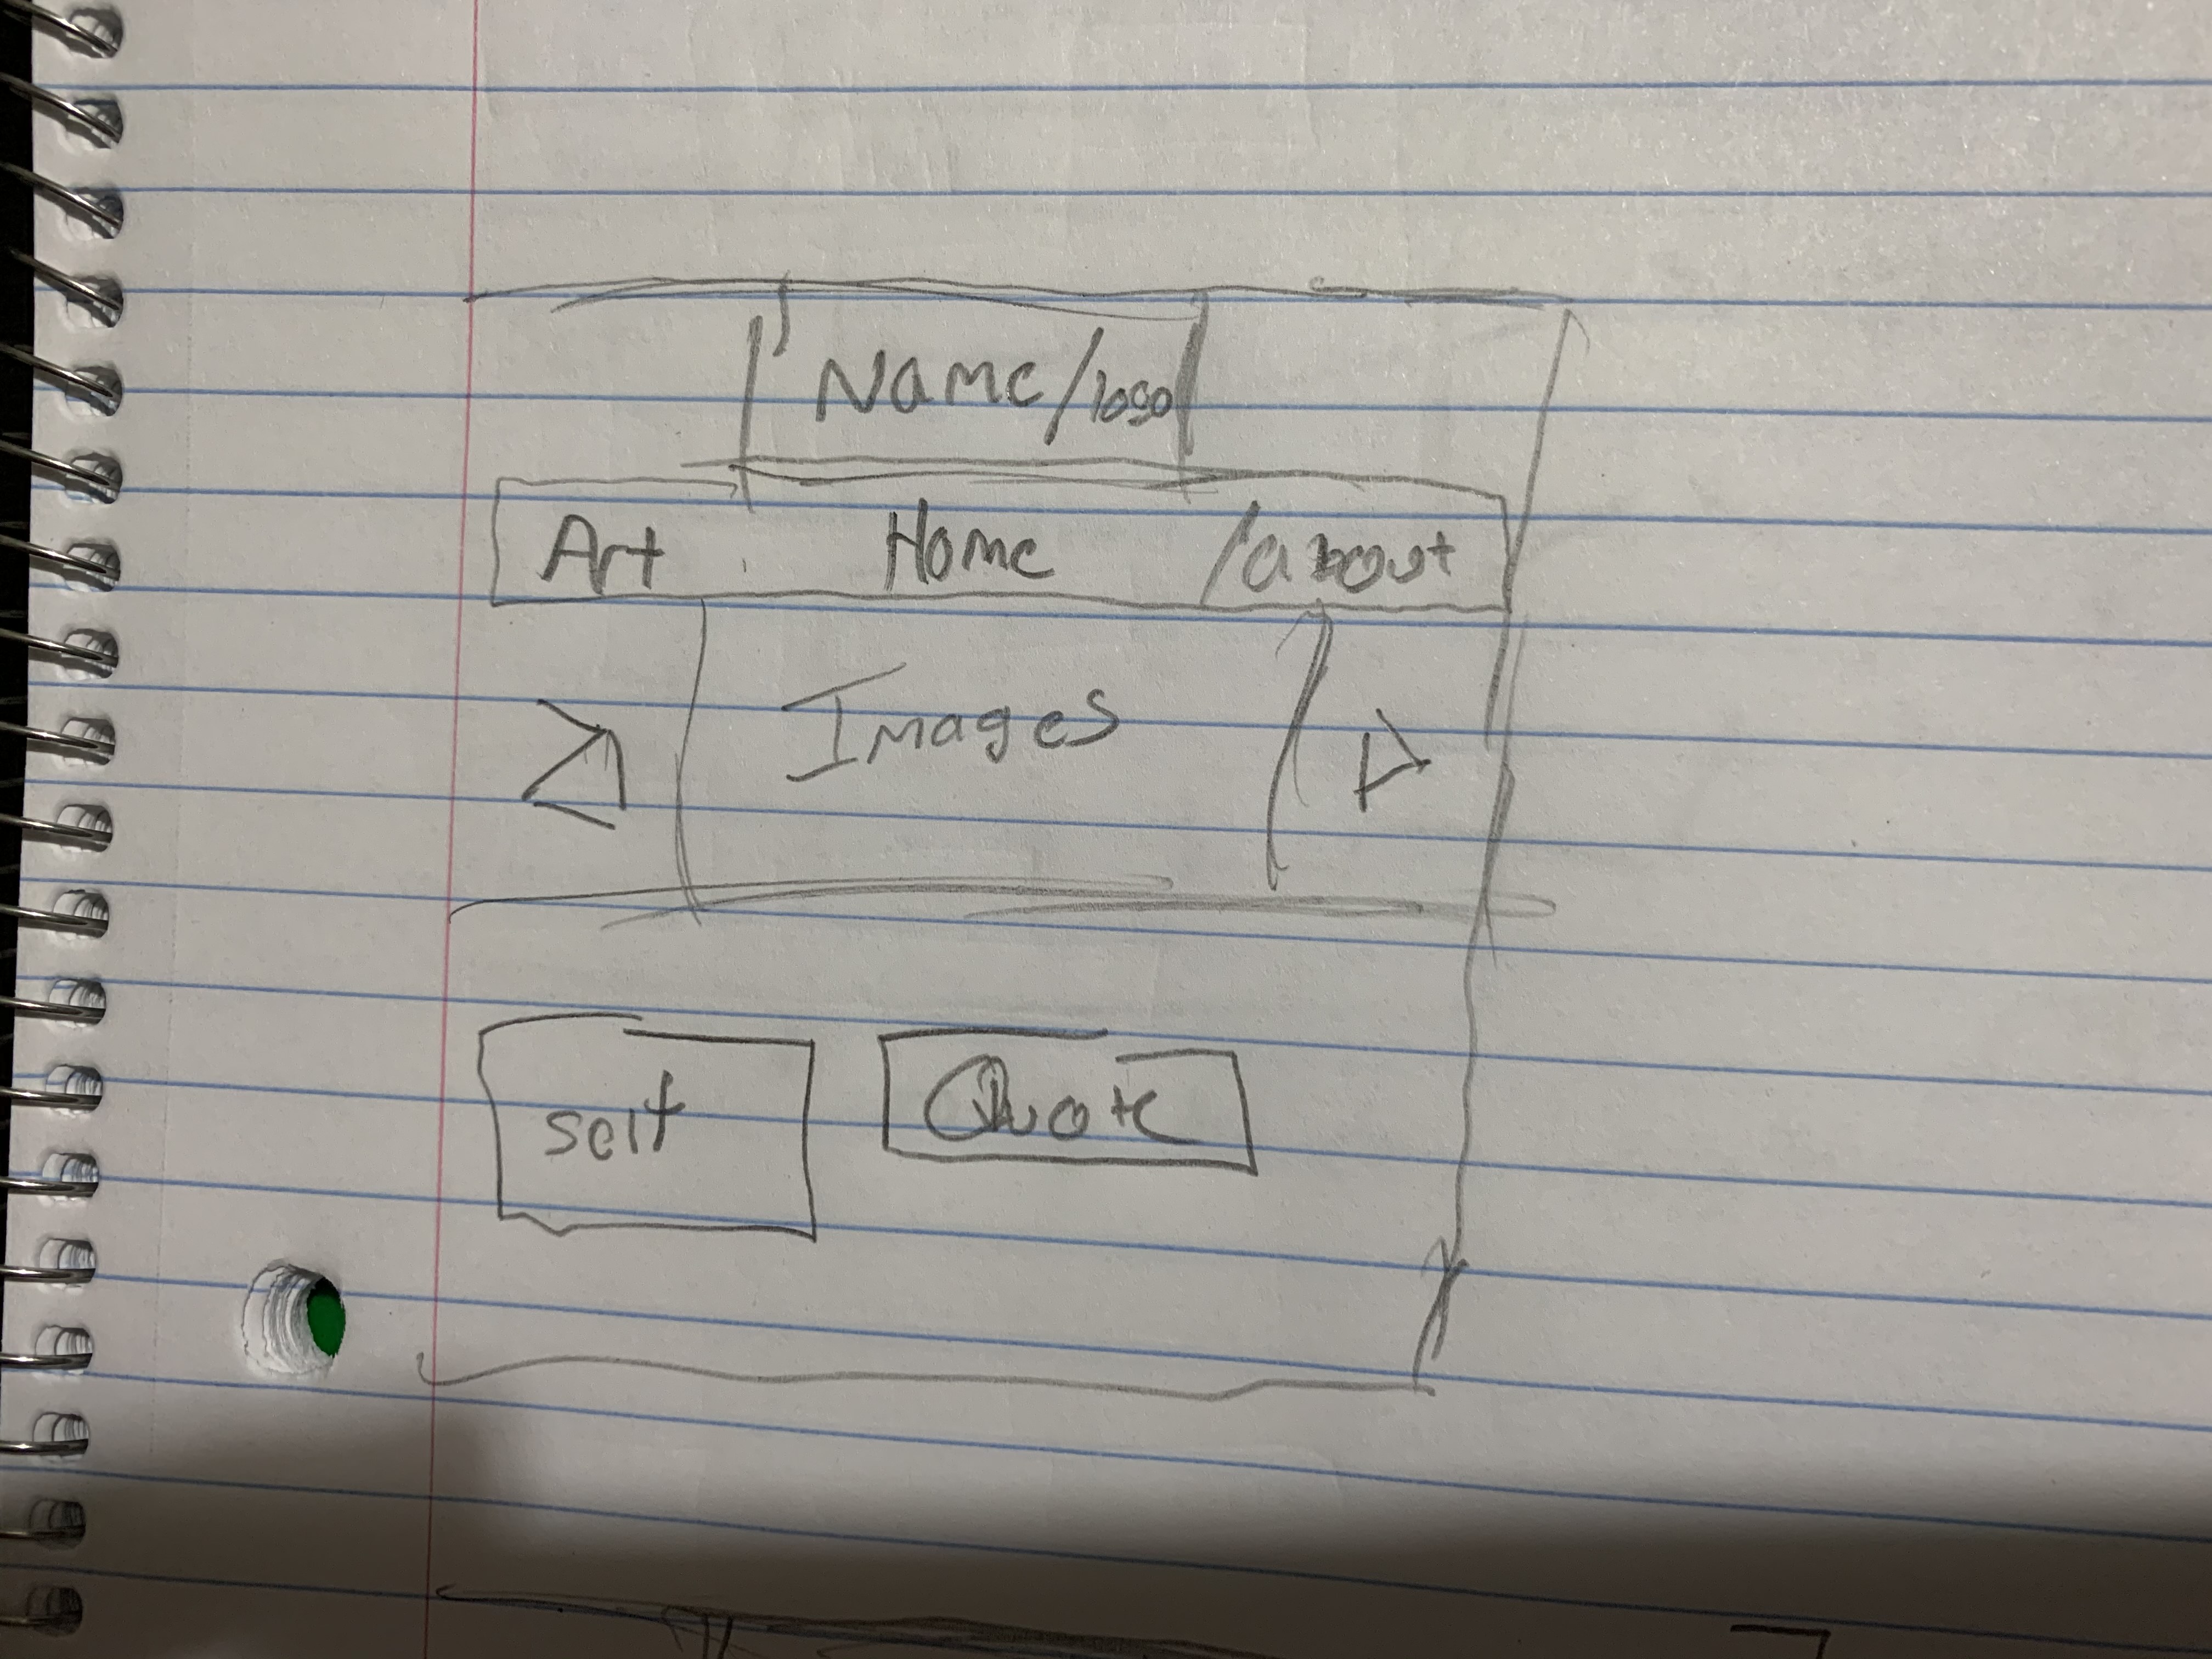 Name/logo
Art Home /about
Images
Self Quote